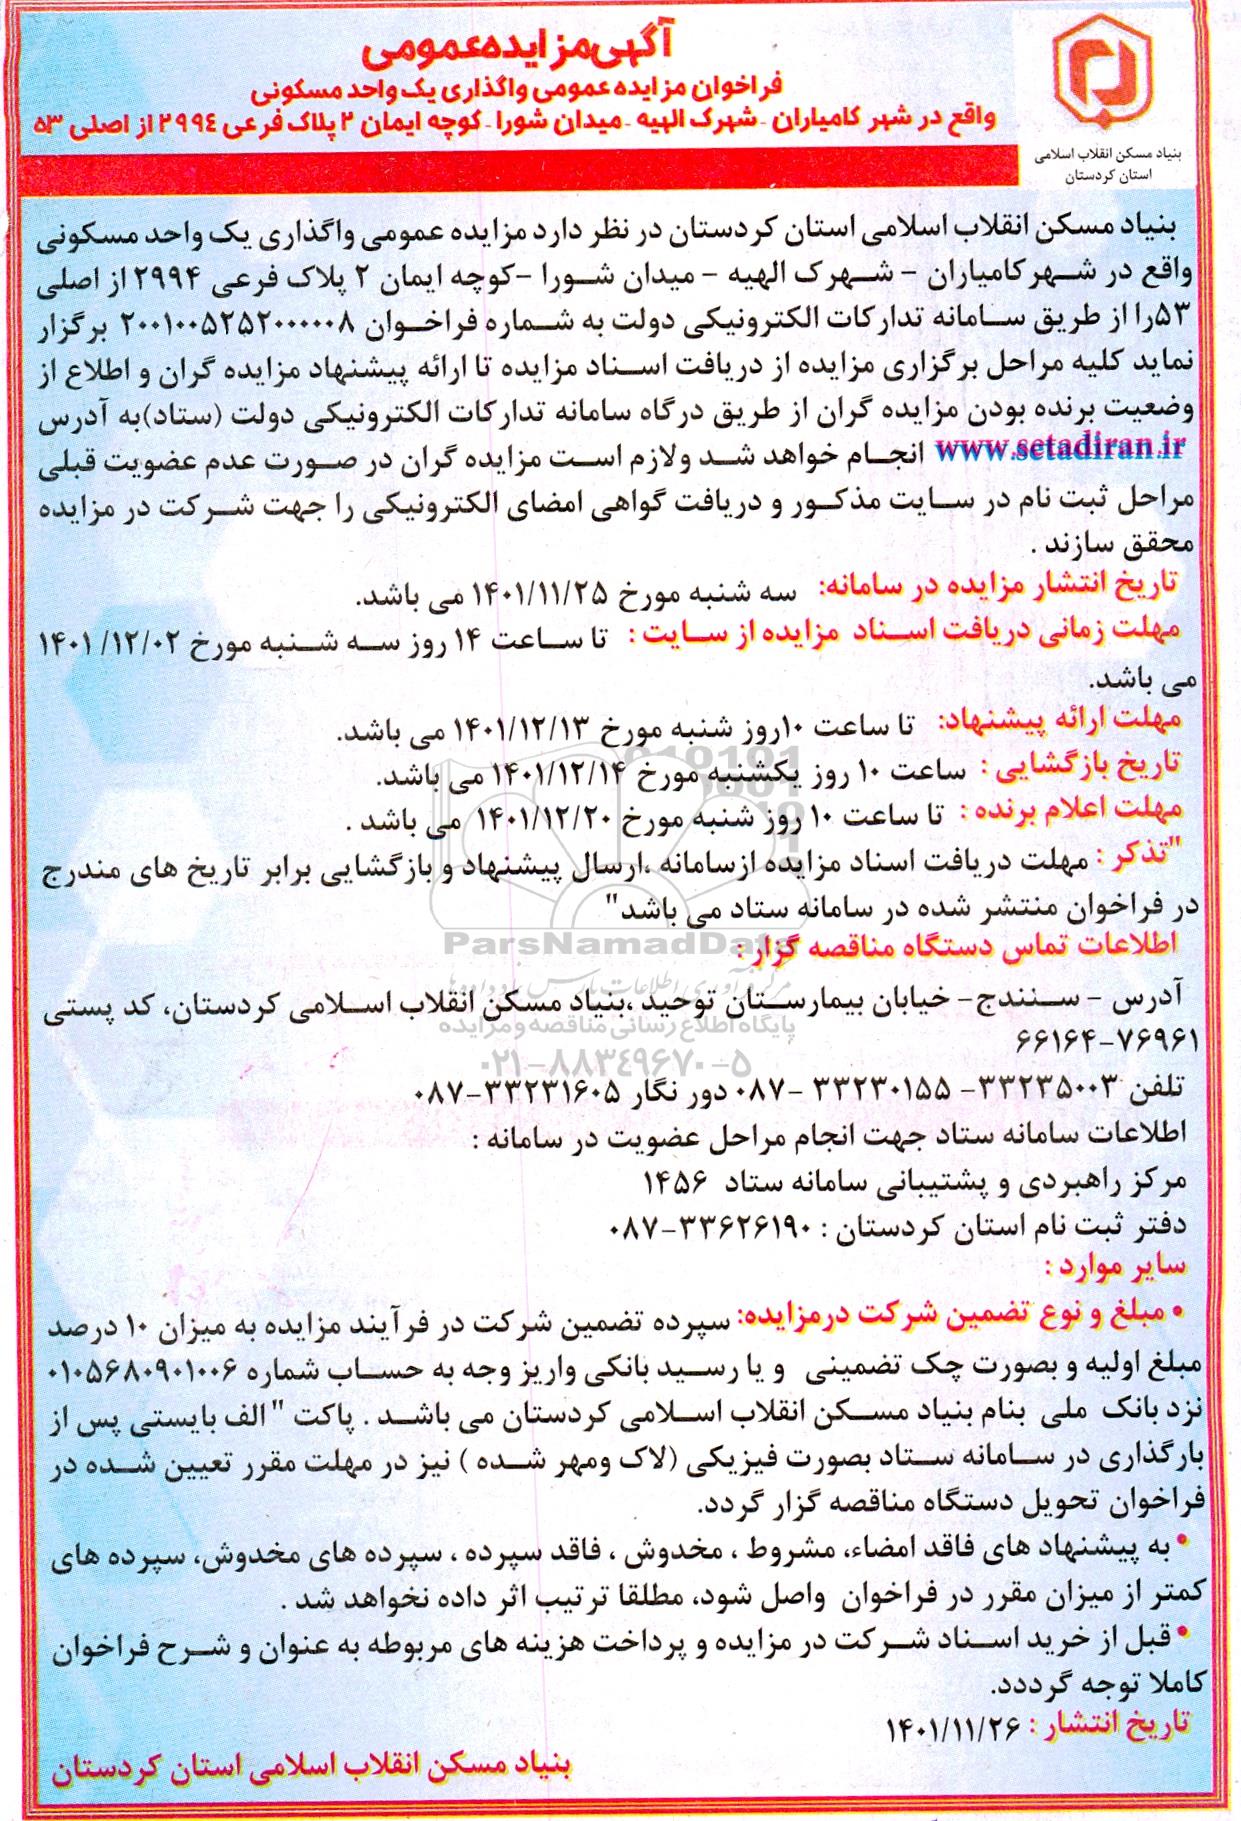 آگهی مزایده عمومی
فراخوان مزایده عمومی واگذاری یک واحد مسکونی
واقع در شهر کامیاران - شهرک الهیه - میدان شورا - کوچه ایمان ۲ پلاک فرعی ۲۹۹٤ از اصلی ۵۳
بنیاد مسکن انقلاب اسلامی
استان کردستان
بنیاد مسکن انقلاب اسلامی استان کردستان در نظر دارد مزایده عمومی واگذاری یک واحد مسکونی
واقع در شهر کامیاران - شهرک الهیه - میدان شورا - کوچه ایمان ۲ پلاک فرعی ۲۹۹۴ از اصلی
۵۳ را از طریق سامانه تدارکات الکترونیکی دولت به شماره فراخوان ۲۰۰۱۰۰۵۲۵۲۰۰۰۰۰۸ برگزار
نماید کلیه مراحل برگزاری مزایده از دریافت اسناد مزایده تا ارائه پیشنهاد مزایده گران و اطلاع از
وضعیت برنده بودن مزایده گران از طریق درگاه سامانه تدارکات الکترونیکی دولت (ستاد)به آدرس
www.setadiran.ir انجام خواهد شد ولازم است مزایده گران در صورت عدم عضویت قبلی
مراحل ثبت نام در سایت مذکور و دریافت گواهی امضای الکترونیکی را جهت شرکت در مزایده
محقق سازند .
تاریخ انتشار مزایده در سامانه: سه شنبه مورخ ۱۴۰۱/۱۱/۲۵ می باشد.
مهلت زمانی دریافت اسناد مزایده از سایت : تا ساعت ۱۴ روز سه شنبه مورخ ۱۴۰۱/۱۲/۰۲
می باشد.
مهلت ارائه پیشنهاد: تا ساعت ۱۰روز شنبه مورخ ۱۴۰۱/۱۲/۱۳ می باشد.
تاریخ بازگشایی : ساعت ۱۰ روز یکشنبه مورخ ۱۴۰۱/۱۲/۱۴ می باشد.
مهلت اعلام برنده : تا ساعت ۱۰ روز شنبه مورخ ۱۴۰۱/۱۲/۲۰ می باشد .
"تذکر : مهلت دریافت اسناد مزایده ازسامانه ،ارسال پیشنهاد و بازگشایی برابر تاریخ های مندرج
در فراخوان منتشر شده در سامانه ستاد می باشد"
ParsNamadData
اطلاعات تماس دستگاه مناقصه گزار :
آدرس - سنندج- خیابان بیمارستان توحید ،بنیاد مسکن انقلاب اسلامی کردستان، کد پستی
۶۶۱۶۴-۷۶۹۶۱
پایگاه اطلاع رسانی مناقصه و مزایده
۰۲۱-۸۸۳٤۹۶۷۰-۵
تلفن ۳۳۲۳۵۰۰۳- ۳۳۲۳۰۱۵۵ -۰۸۷ دور نگار ۳۳۲۳۱۶۰۵-۰۸۷
اطلاعات سامانه ستاد جهت انجام مراحل عضویت در سامانه :
مرکز راهبردی و پشتیبانی سامانه ستاد ۱۴۵۶
دفتر ثبت نام استان کردستان : ۳۳۶۲۶۱۹۰-۰۸۷
سایر موارد :
• مبلغ و نوع تضمین شرکت درمزایده: سپرده تضمین شرکت در فرآیند مزایده به میزان ۱۰ درصد
مبلغ اولیه و بصورت چک تضمینی و یا رسید بانکی واریز وجه به حساب شماره ۰۱۰۵۶۸۰۹۰۱۰۰۶
نزد بانک ملی بنام بنیاد مسکن انقلاب اسلامی کردستان می باشد . پاکت " الف بایستی پس از
بارگذاری در سامانه ستاد بصورت فیزیکی (لاک ومهر شده ) نیز در مهلت مقرر تعیین شده در
فراخوان تحویل دستگاه مناقصه گزار گردد.
• به پیشنهاد های فاقد امضاء، مشروط ، مخدوش ، فاقد سپرده ، سپرده های مخدوش، سپرده های
کمتر از میزان مقرر در فراخوان واصل شود، مطلقا ترتیب اثر داده نخواهد شد .
• قبل از خرید اسناد شرکت در مزایده و پرداخت هزینه های مربوطه به عنوان و شرح فراخوان
کاملا توجه گرددد.
تاریخ انتشار : ۱۴۰۱/۱۱/۲۶
بنیاد مسکن انقلاب اسلامی استان کردستان